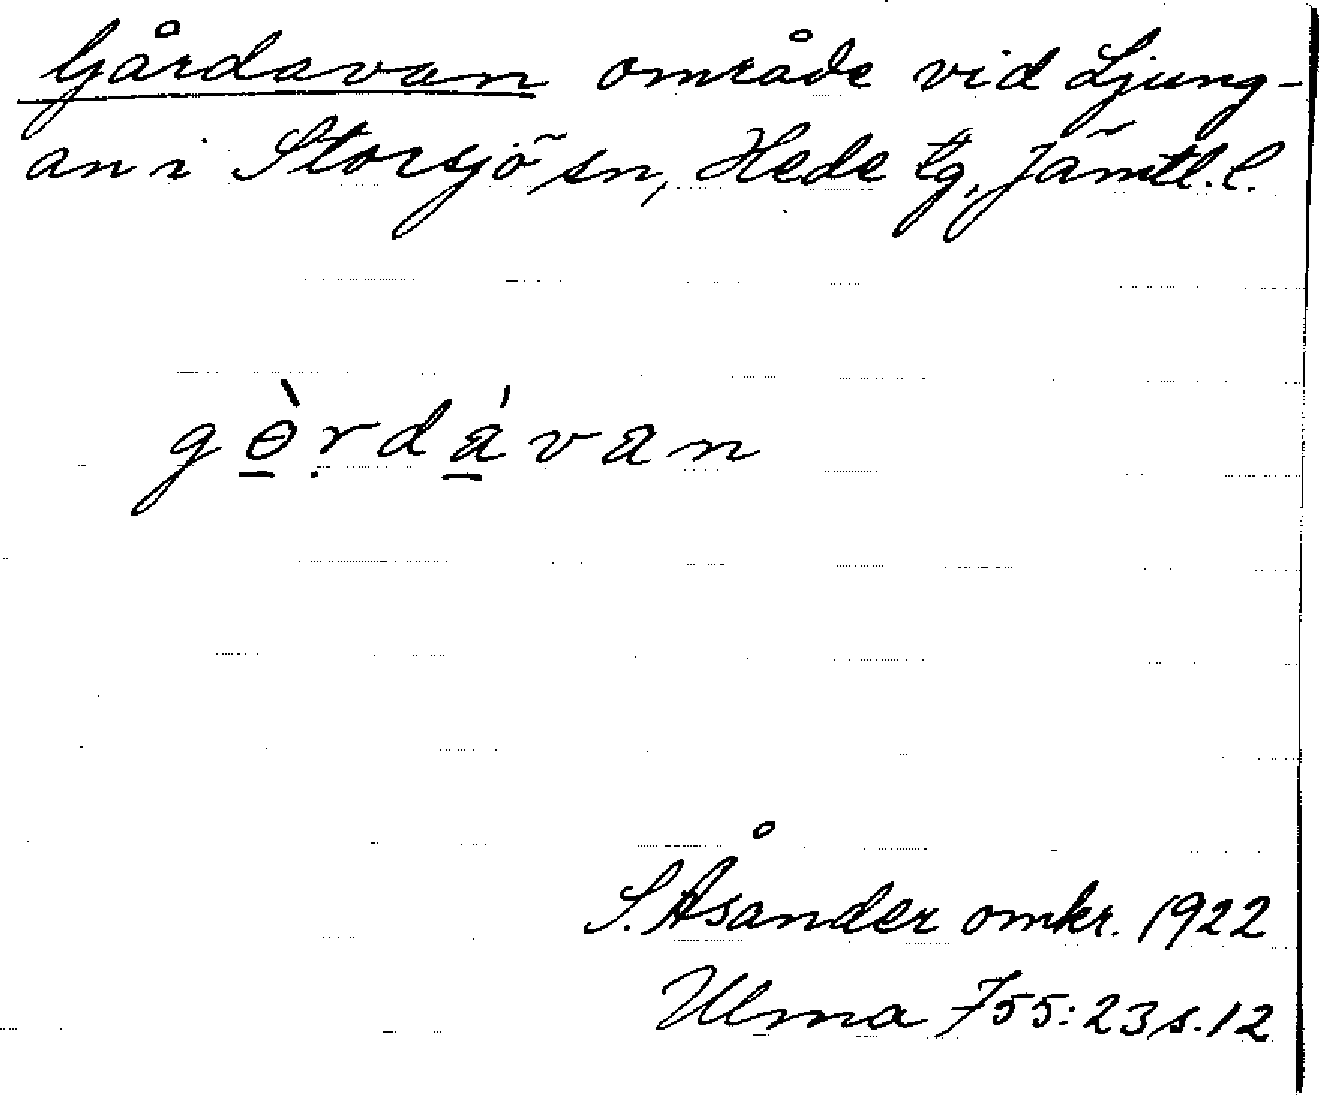 Gårdavan område vid Ljung-
an i Storsjö sn, Hede tg, Jämtl. l.
gɵ̠̀rdá̠van
S. Åsander omkr. 1922
Ulma 755:23 s. 12